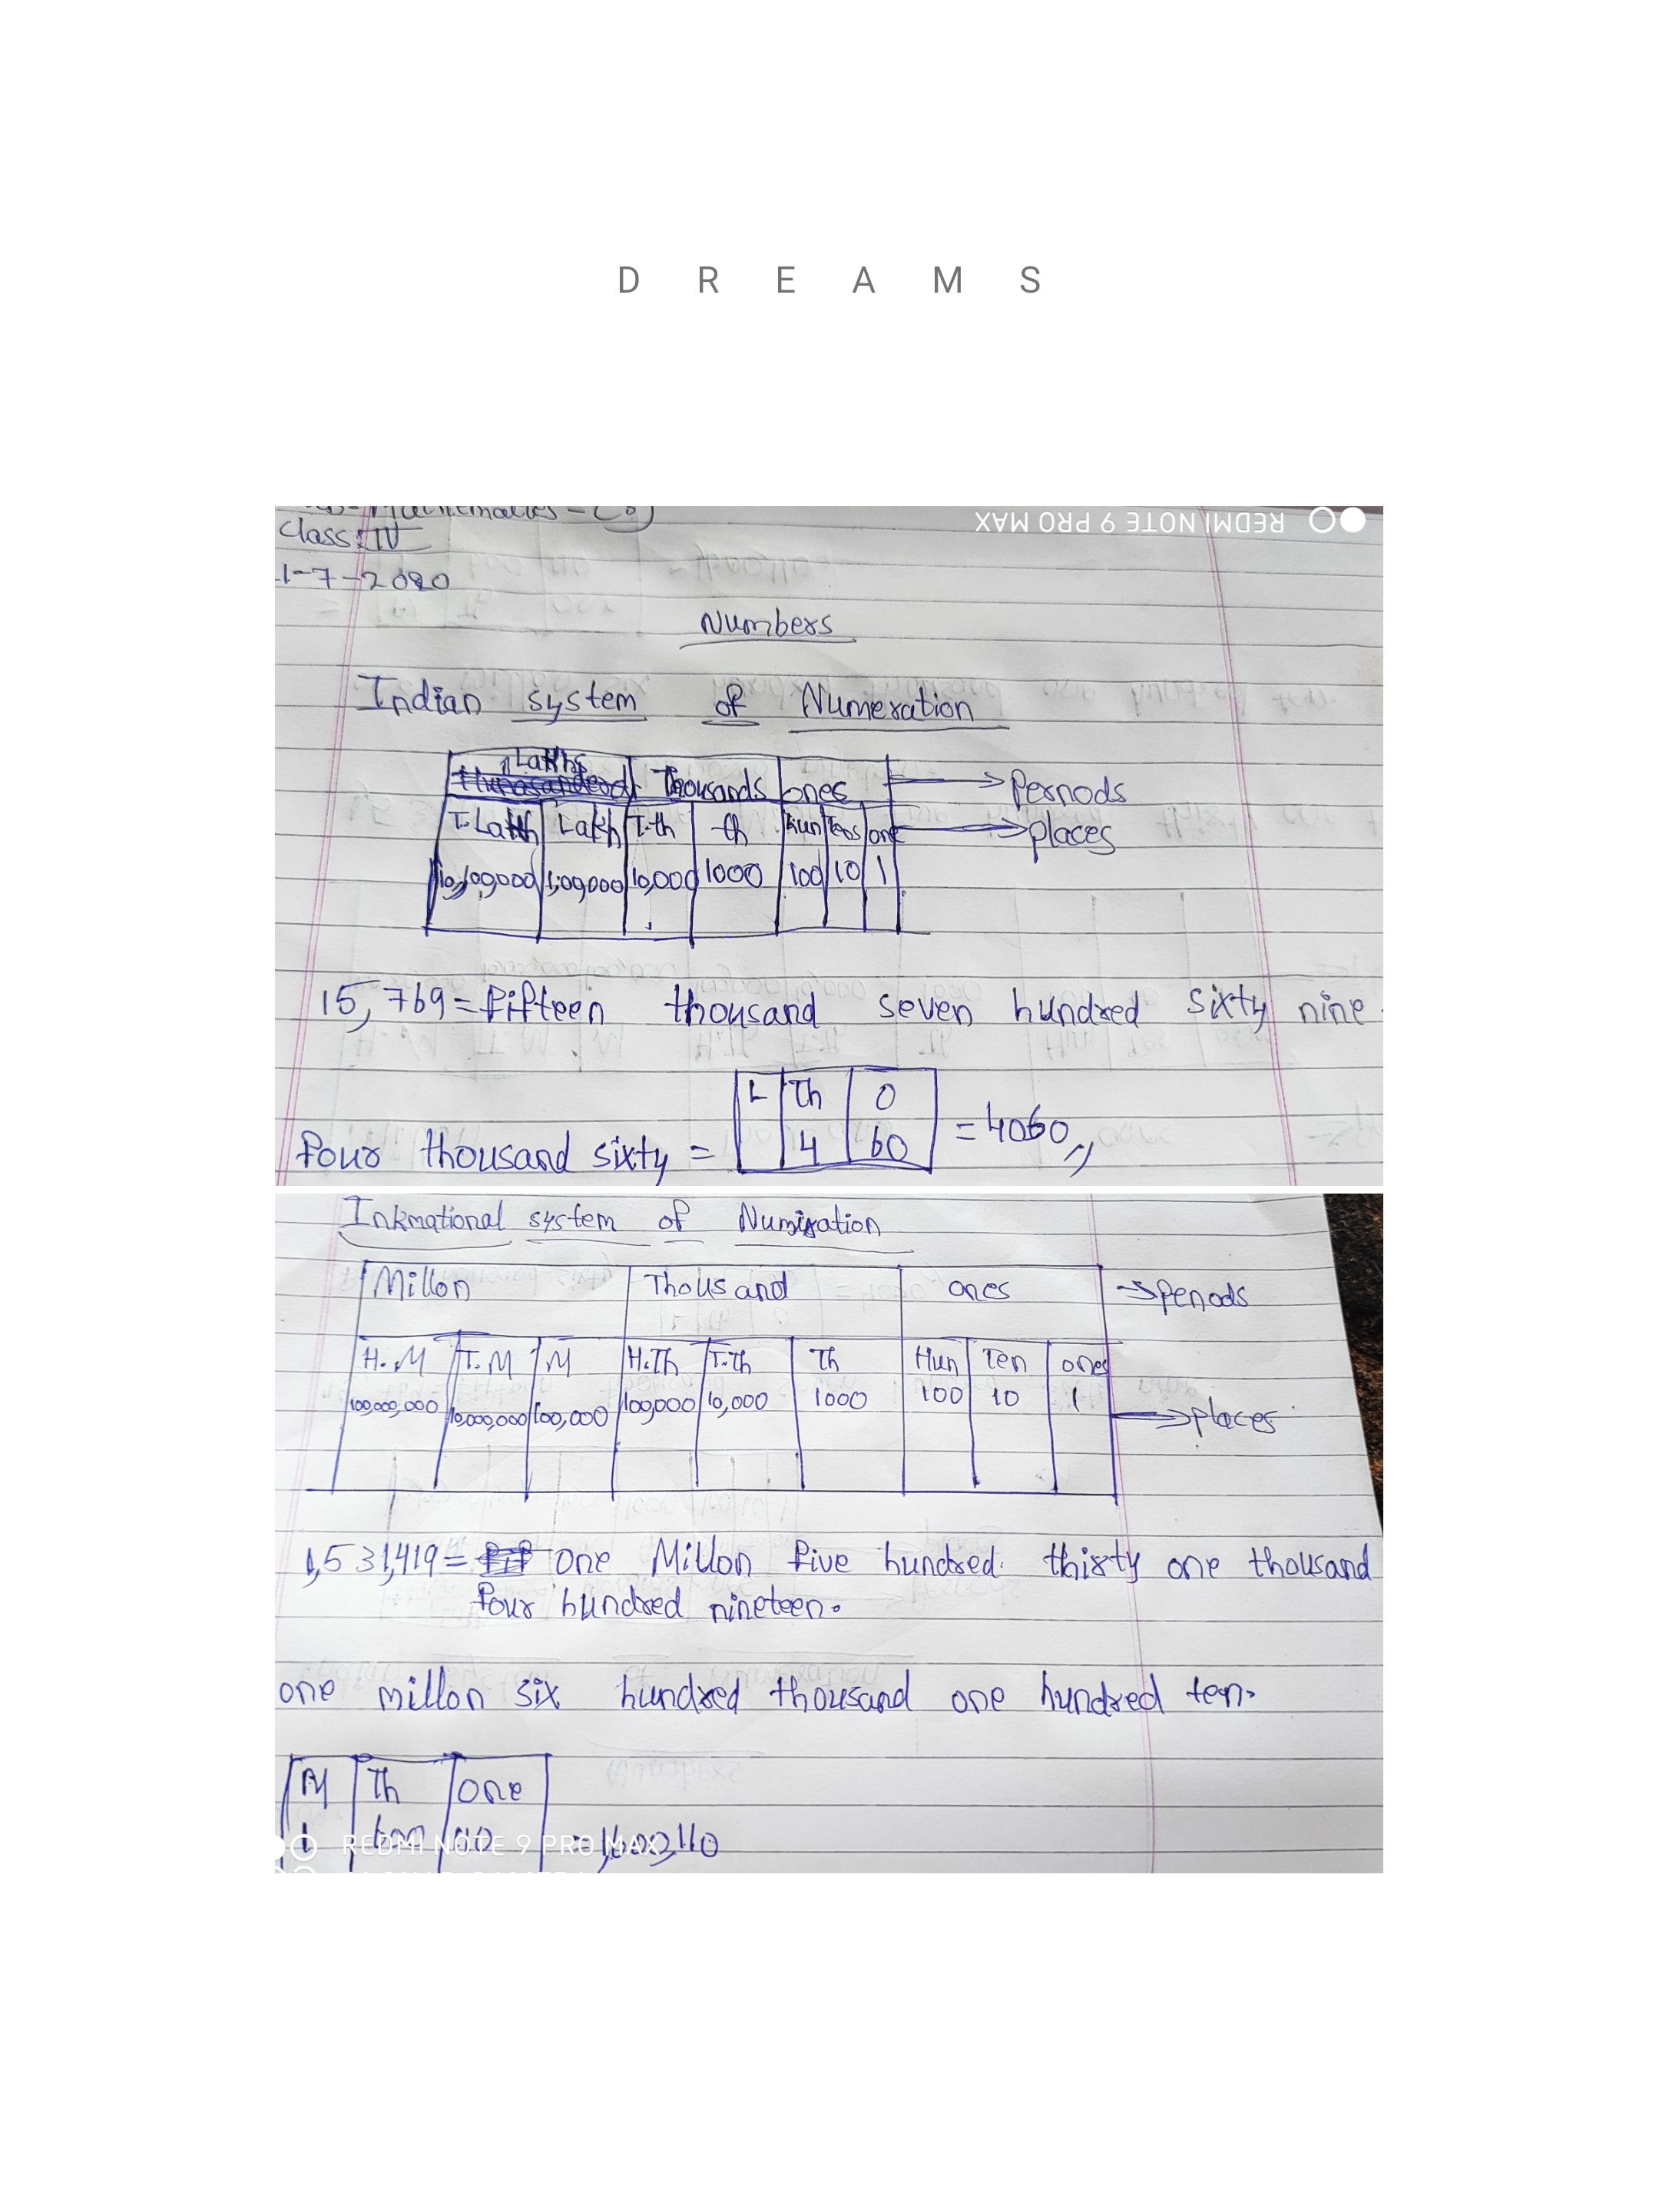 D R E A M S
REDMI NOTE 9 PRO MAX
Class: IV
1-7-2020
Numbers
Indian system of Numeration
Lakhs Thousands ones → Pernods
T.Lakh Lakh T.th th Hun Tens one → places
10,00,000 1,00,000 10,000 1000 100 10 1
15,769 = fifteen thousand seven hundred sixty nine
L Th O
four thousand sixty = 4 60 = 4060,,
Inkrnational system of Numiration
Millon Thousand ones → Penods
H.M T.M M H.Th T.Th Th Hun Ten ones
100,000,000 10,000,000 100,000 100,000 10,000 1000 100 10 1 → places
1,531,419 = one Millon five hundred thirty one thousand
four hundred nineteen.
one millon six hundred thousand one hundred ten.
M Th one
1 = 1,600,110
REDMI NOTE 9 PRO MAX